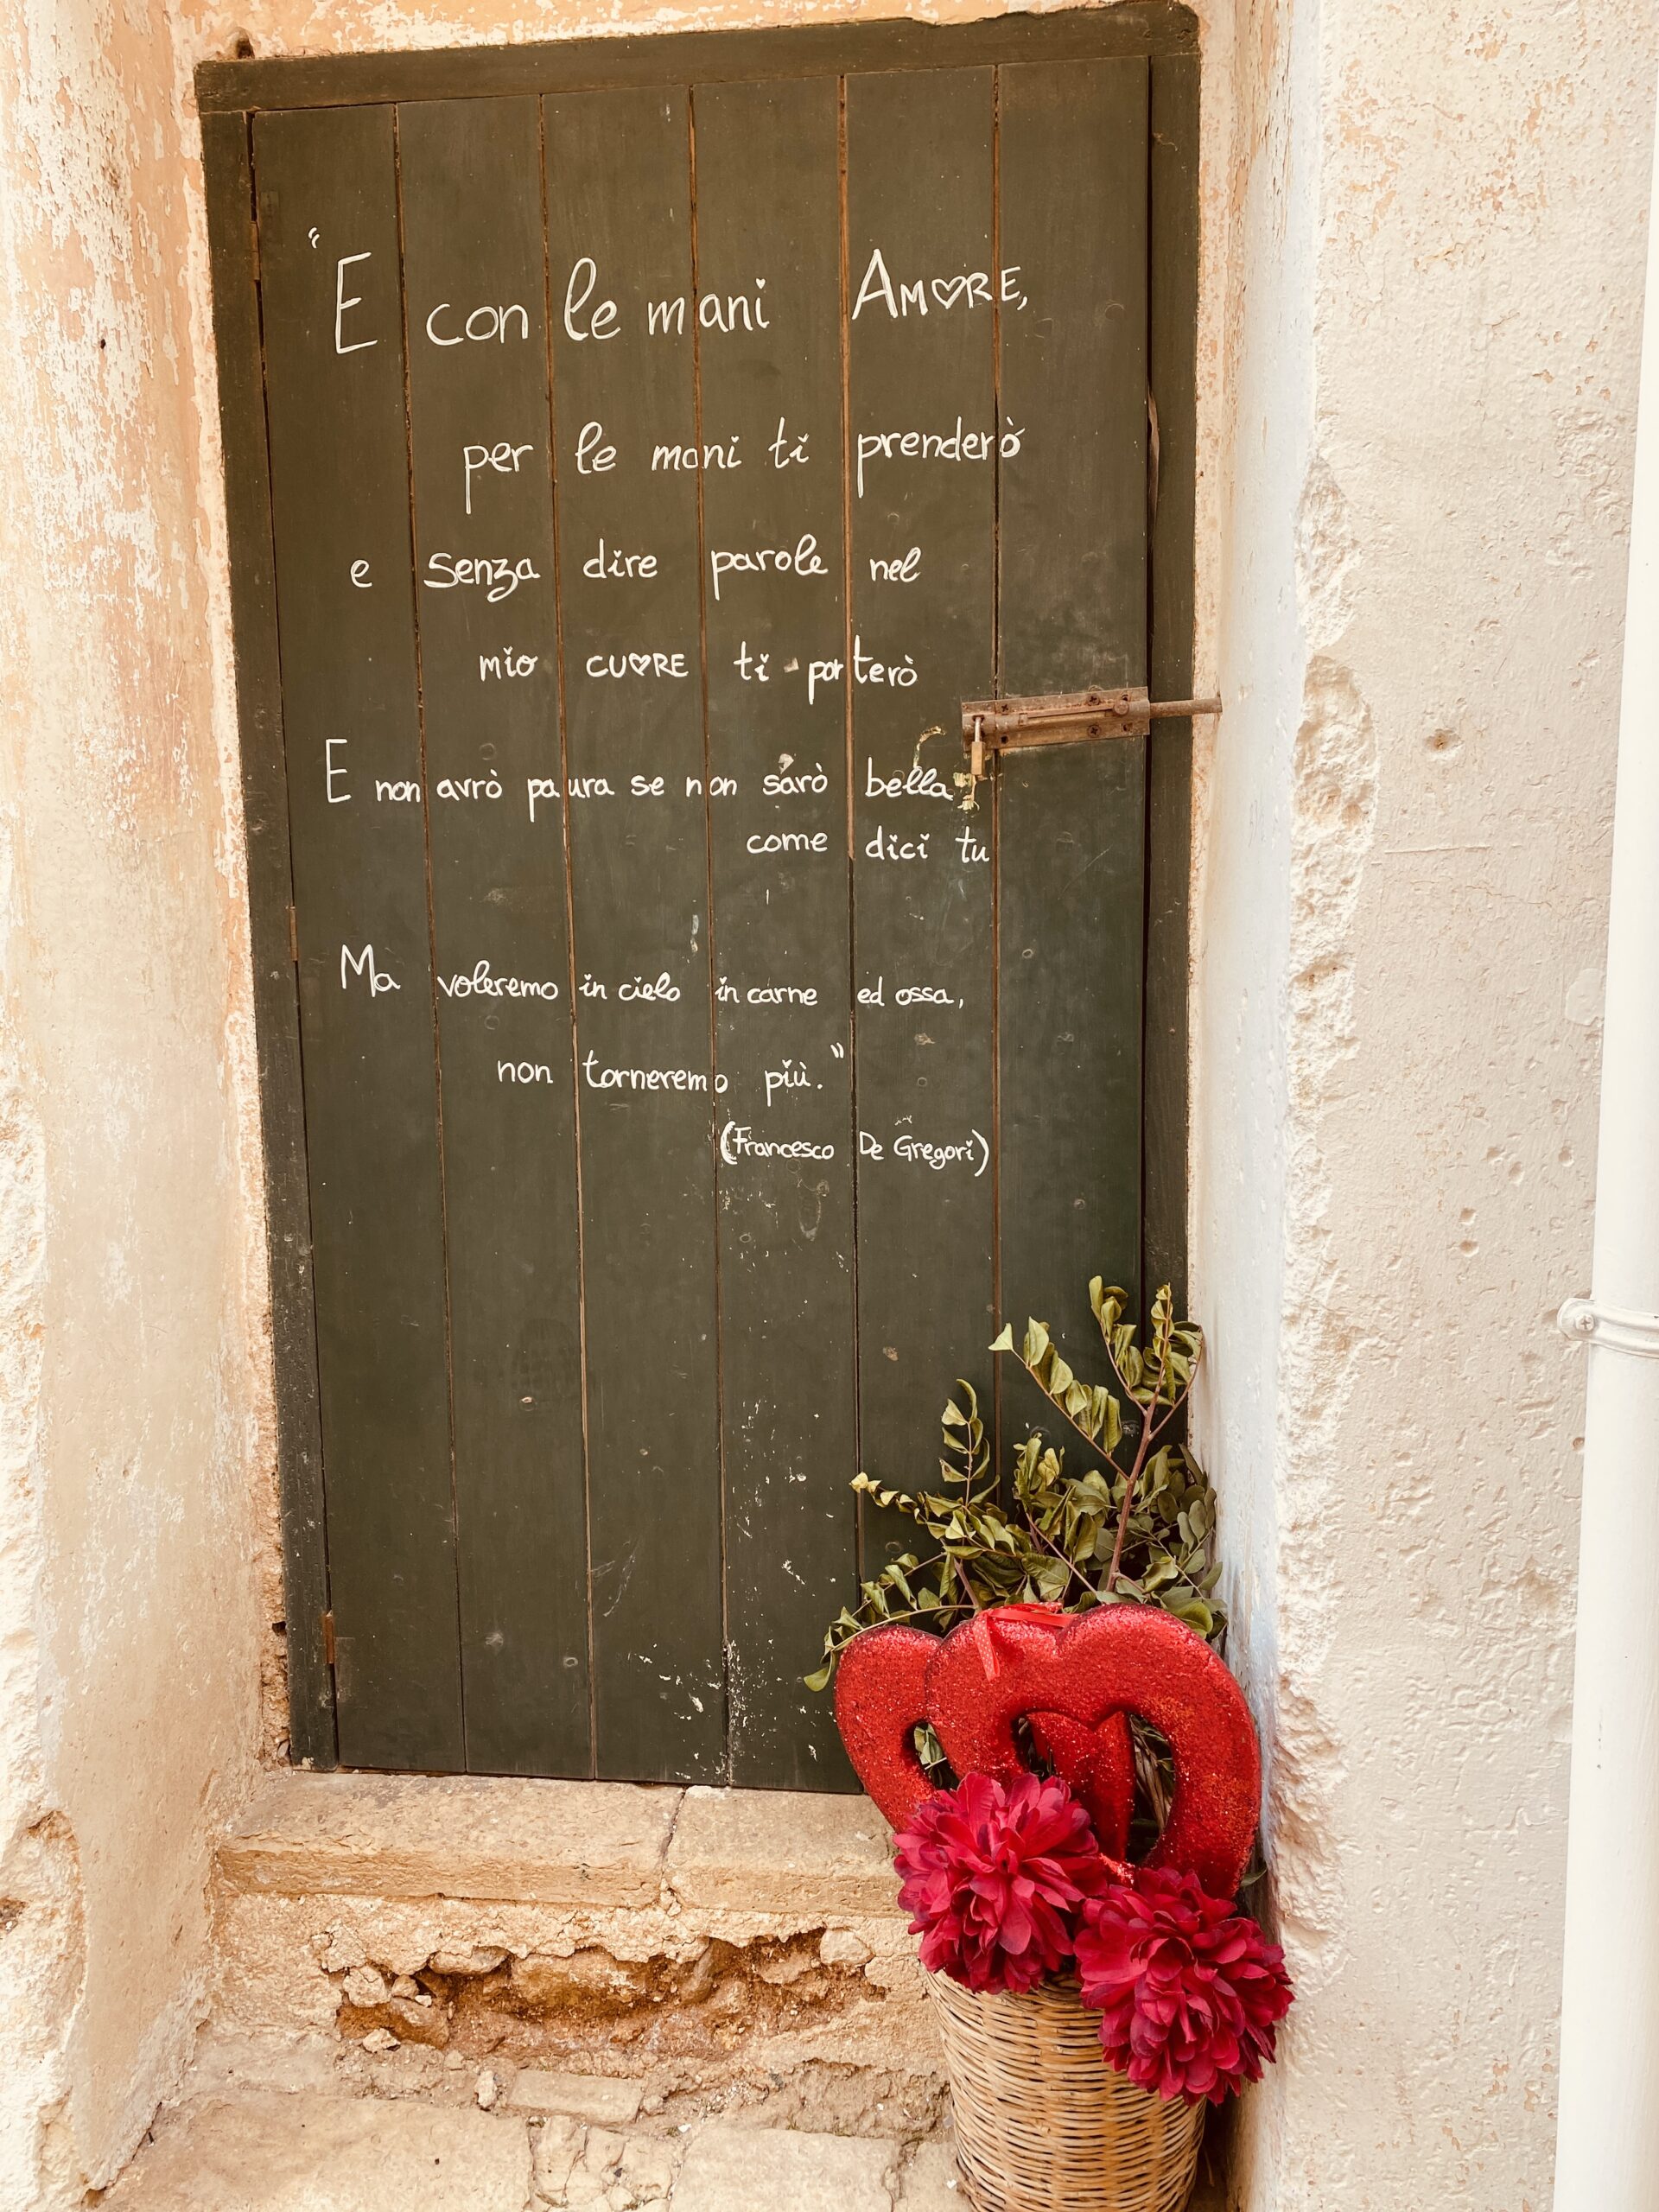 "E con le mani AMORE,
per le mani ti prenderò
e senza dire parole nel
mio CUORE ti porterò
E non avrò paura se non sarò bella
come dici tu
Ma voleremo in cielo in carne ed ossa,
non torneremo più."
(Francesco De Gregori)